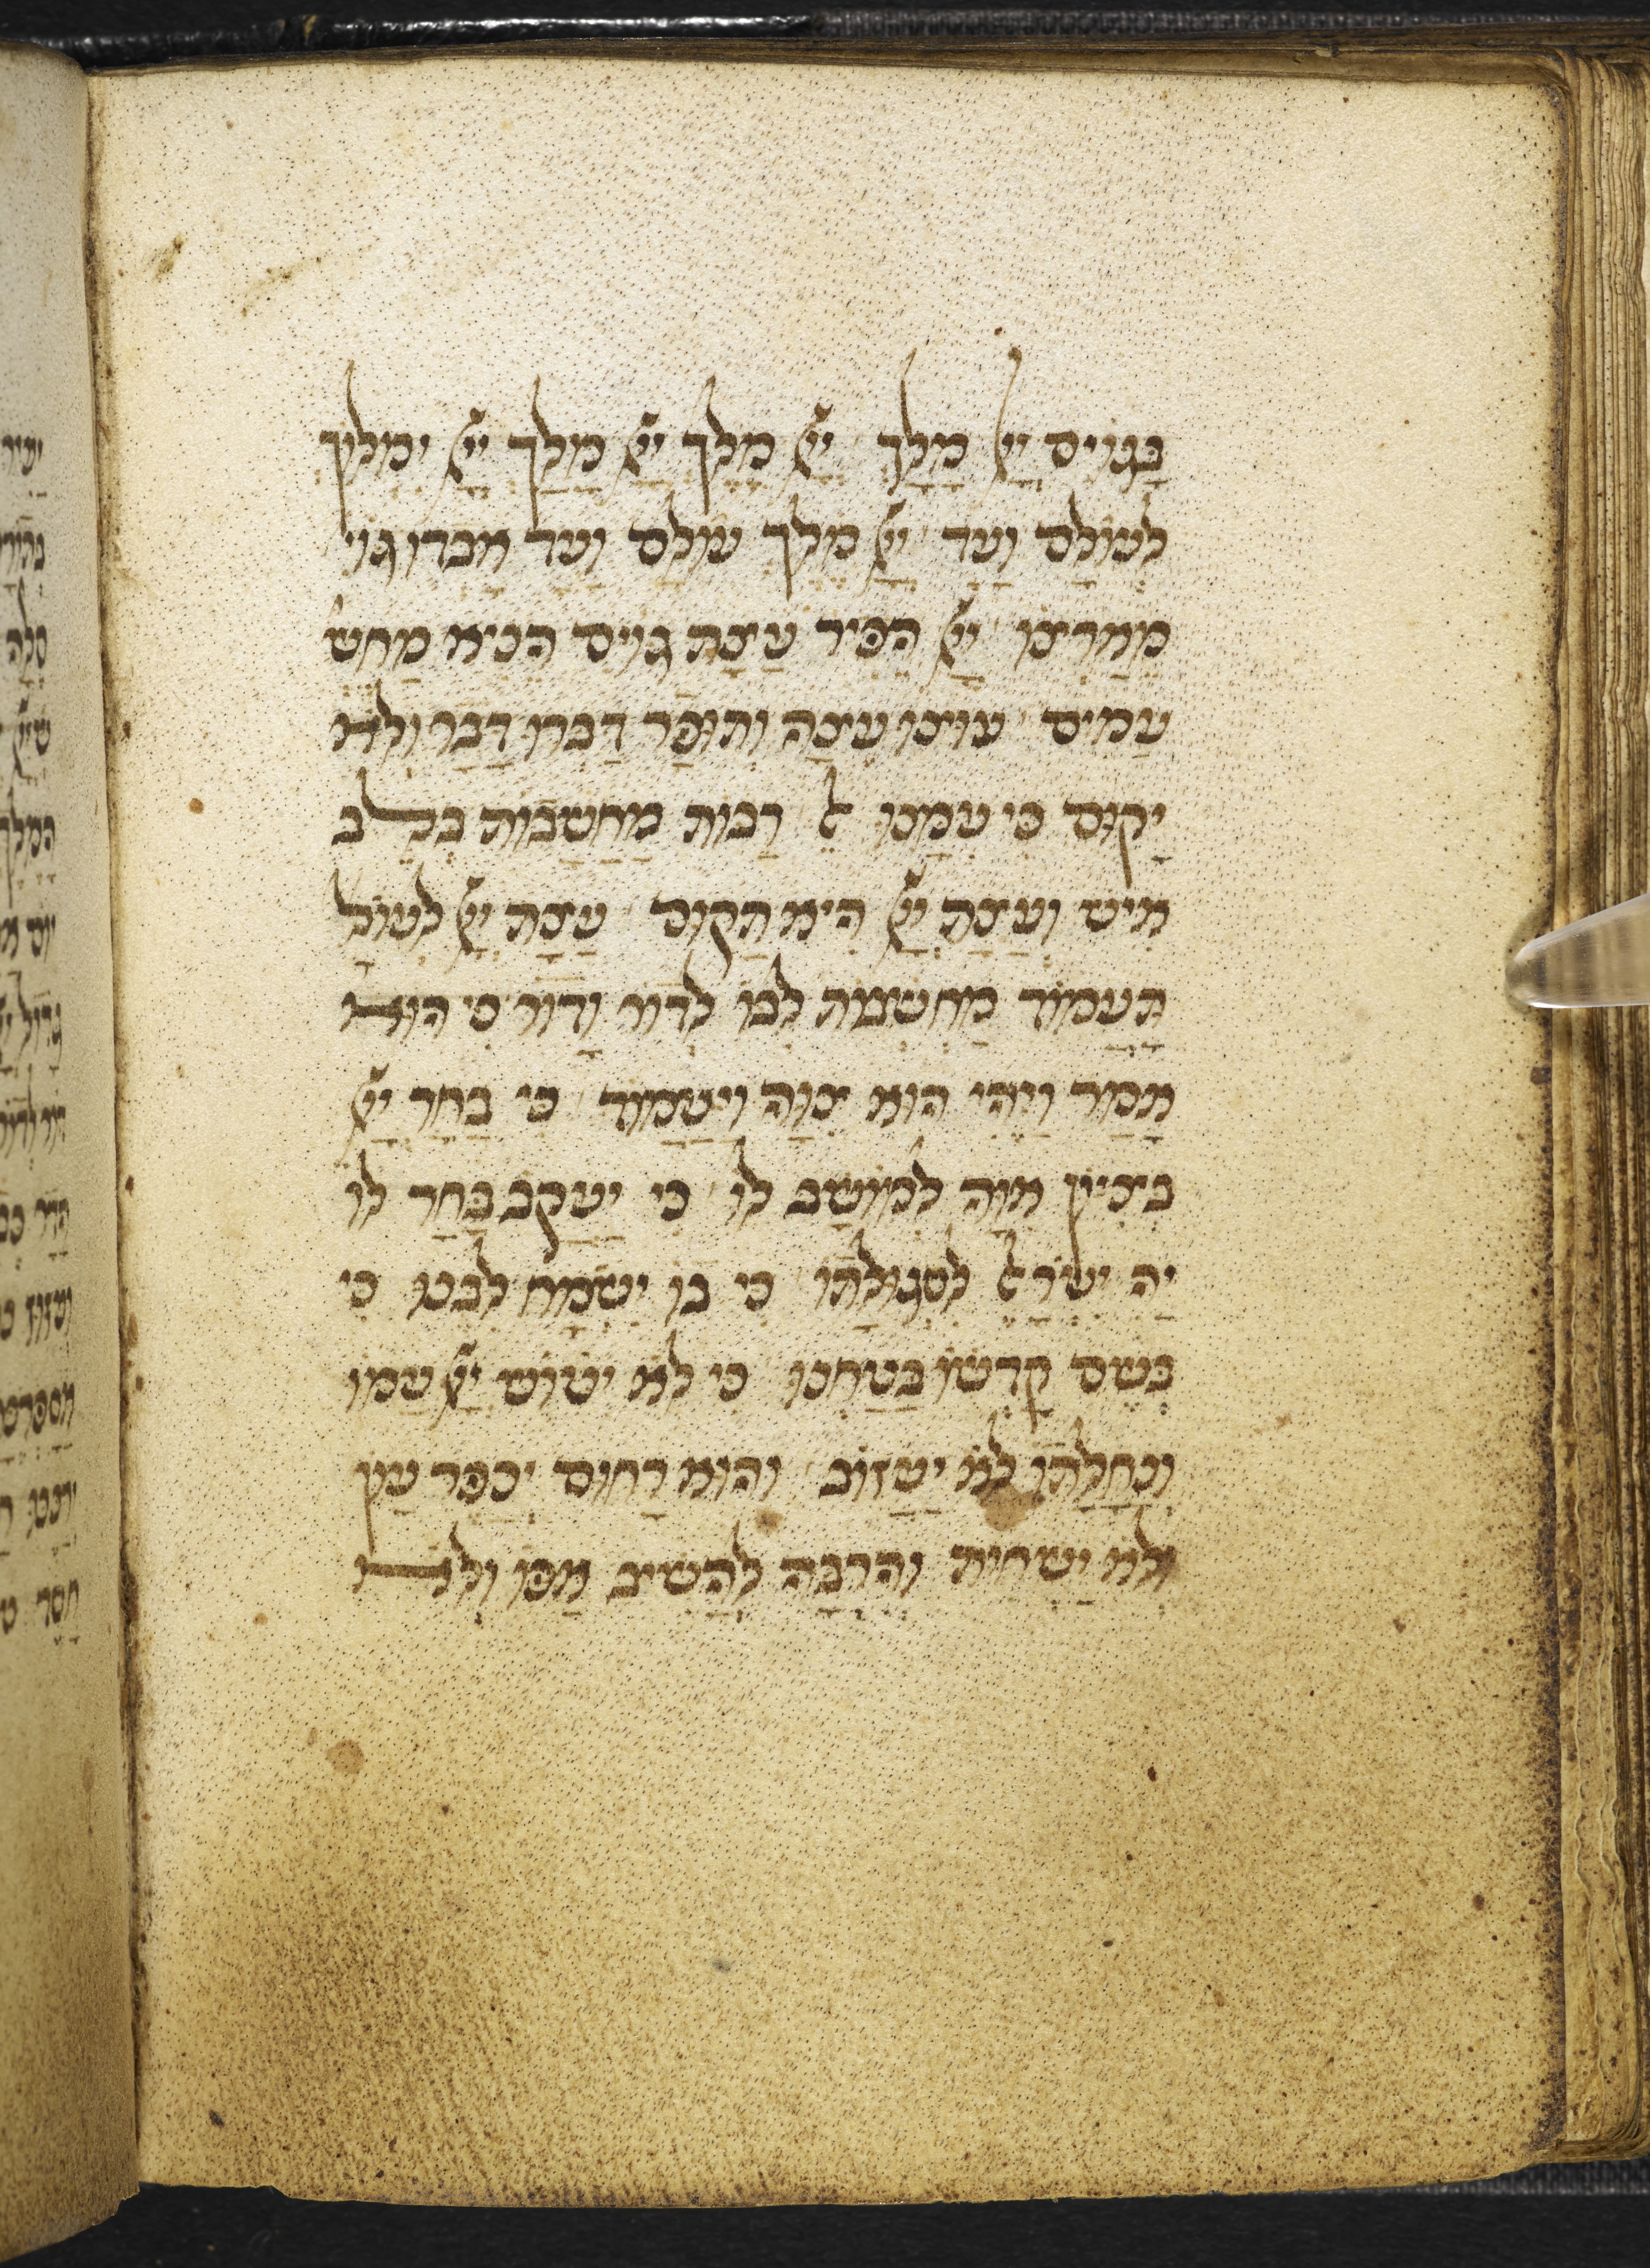 בַּגּוֹיִם יְיָ מֶלֶךְ יְיָ מָלַךְ יְיָ מָלַךְ יְיָ יִמְלֹךְ
לְעוֹלָם וָעֶד יְיָ מֶלֶךְ עוֹלָם וָעֶד אָבְדוּ גוֹיִ
מֵאַרְצוֹ יְיָ הֵפִיר עֲצַת גּוֹיִם הֵנִיא מַחְשְׁ
עַמִּים עוּצוּ עֵצָה וְתוּפָר דַּבְּרוּ דָבָר וְלֹא
יָקוּם כִּי עִמָּנוּ אֵל רַבּוֹת מַחֲשָׁבוֹת בְּלֶב
אִישׁ וַעֲצַת יְיָ הִיא תָקוּם עֲצַת יְיָ לְעוֹלָ
תַּעֲמוֹד מַחְשְׁבוֹת לִבּוֹ לְדוֹר וָדוֹר כִּי הוּא
אָמַר וַיֶּהִי הוּא צִוָּה וַיַּעֲמוֹד כִּי בָחַר יְיָ
בְּצִיּוֹן אִוָּהּ לְמוֹשָׁב לוֹ כִּי יַעֲקֹב בָּחַר לוֹ
יָהּ יִשְׂרָאֵל לִסְגֻלָּתוֹ כִּי בוֹ יִשְׂמַח לִבֵּנוּ כִּי
בְשֵׁם קָדְשׁוֹ בָטָחְנוּ כִּי לֹא יִטּוֹשׁ יְיָ עַמּוֹ
וְנַחֲלָתוֹ לֹא יַעֲזוֹב וְהוּא רַחוּם יְכַפֵּר עָוֹן
וְלֹא יַשְׁחִית וְהִרְבָּה לְהָשִׁיב אַפּוֹ וְלֹא